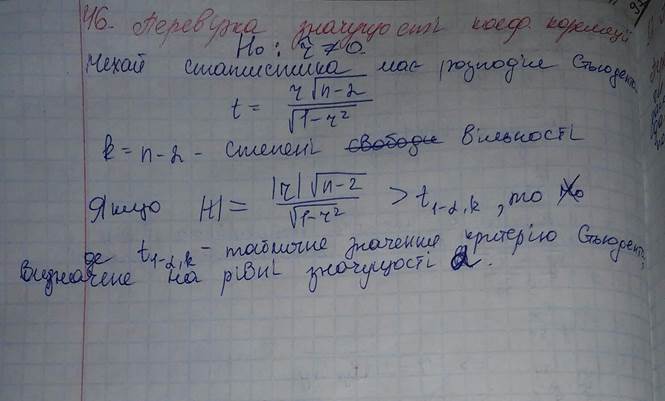 46. Перевірка значущості коеф. кореляції
H₀: r ≠ 0
Нехай статистика має розподіл Стьюдента
t = r√(n-2) / √(1-r²)
k = n-2 - степені вільності
Якщо |t| = |r|√(n-2) / √(1-r²) > t₁₋α,k, то H₀
де t₁₋α,k - табличне значення критерію Стьюдента,
визначене на рівні значущості α.